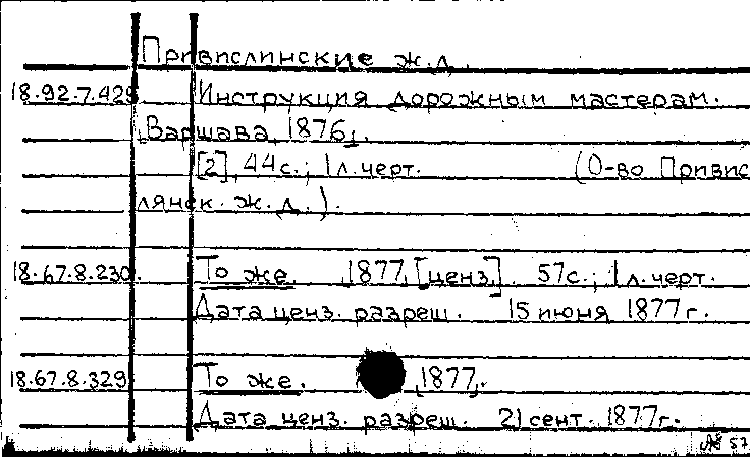 Привислинские ж.д.
18.92.7.429. Инструкция дорожным мастерам.
Варшава, 1876.
[2], 44 с.; 1 л. черт. (О-во Привис
лянск. ж. д.).
18.67.8.230. То же. 1877, [ценз.]. 57 с.; 1 л. черт.
Дата ценз. разреш. 15 июня 1877 г.
18.67.8.329 То же. 1877.
Дата ценз. разреш. 21 сент. 1877 г.
№ 57